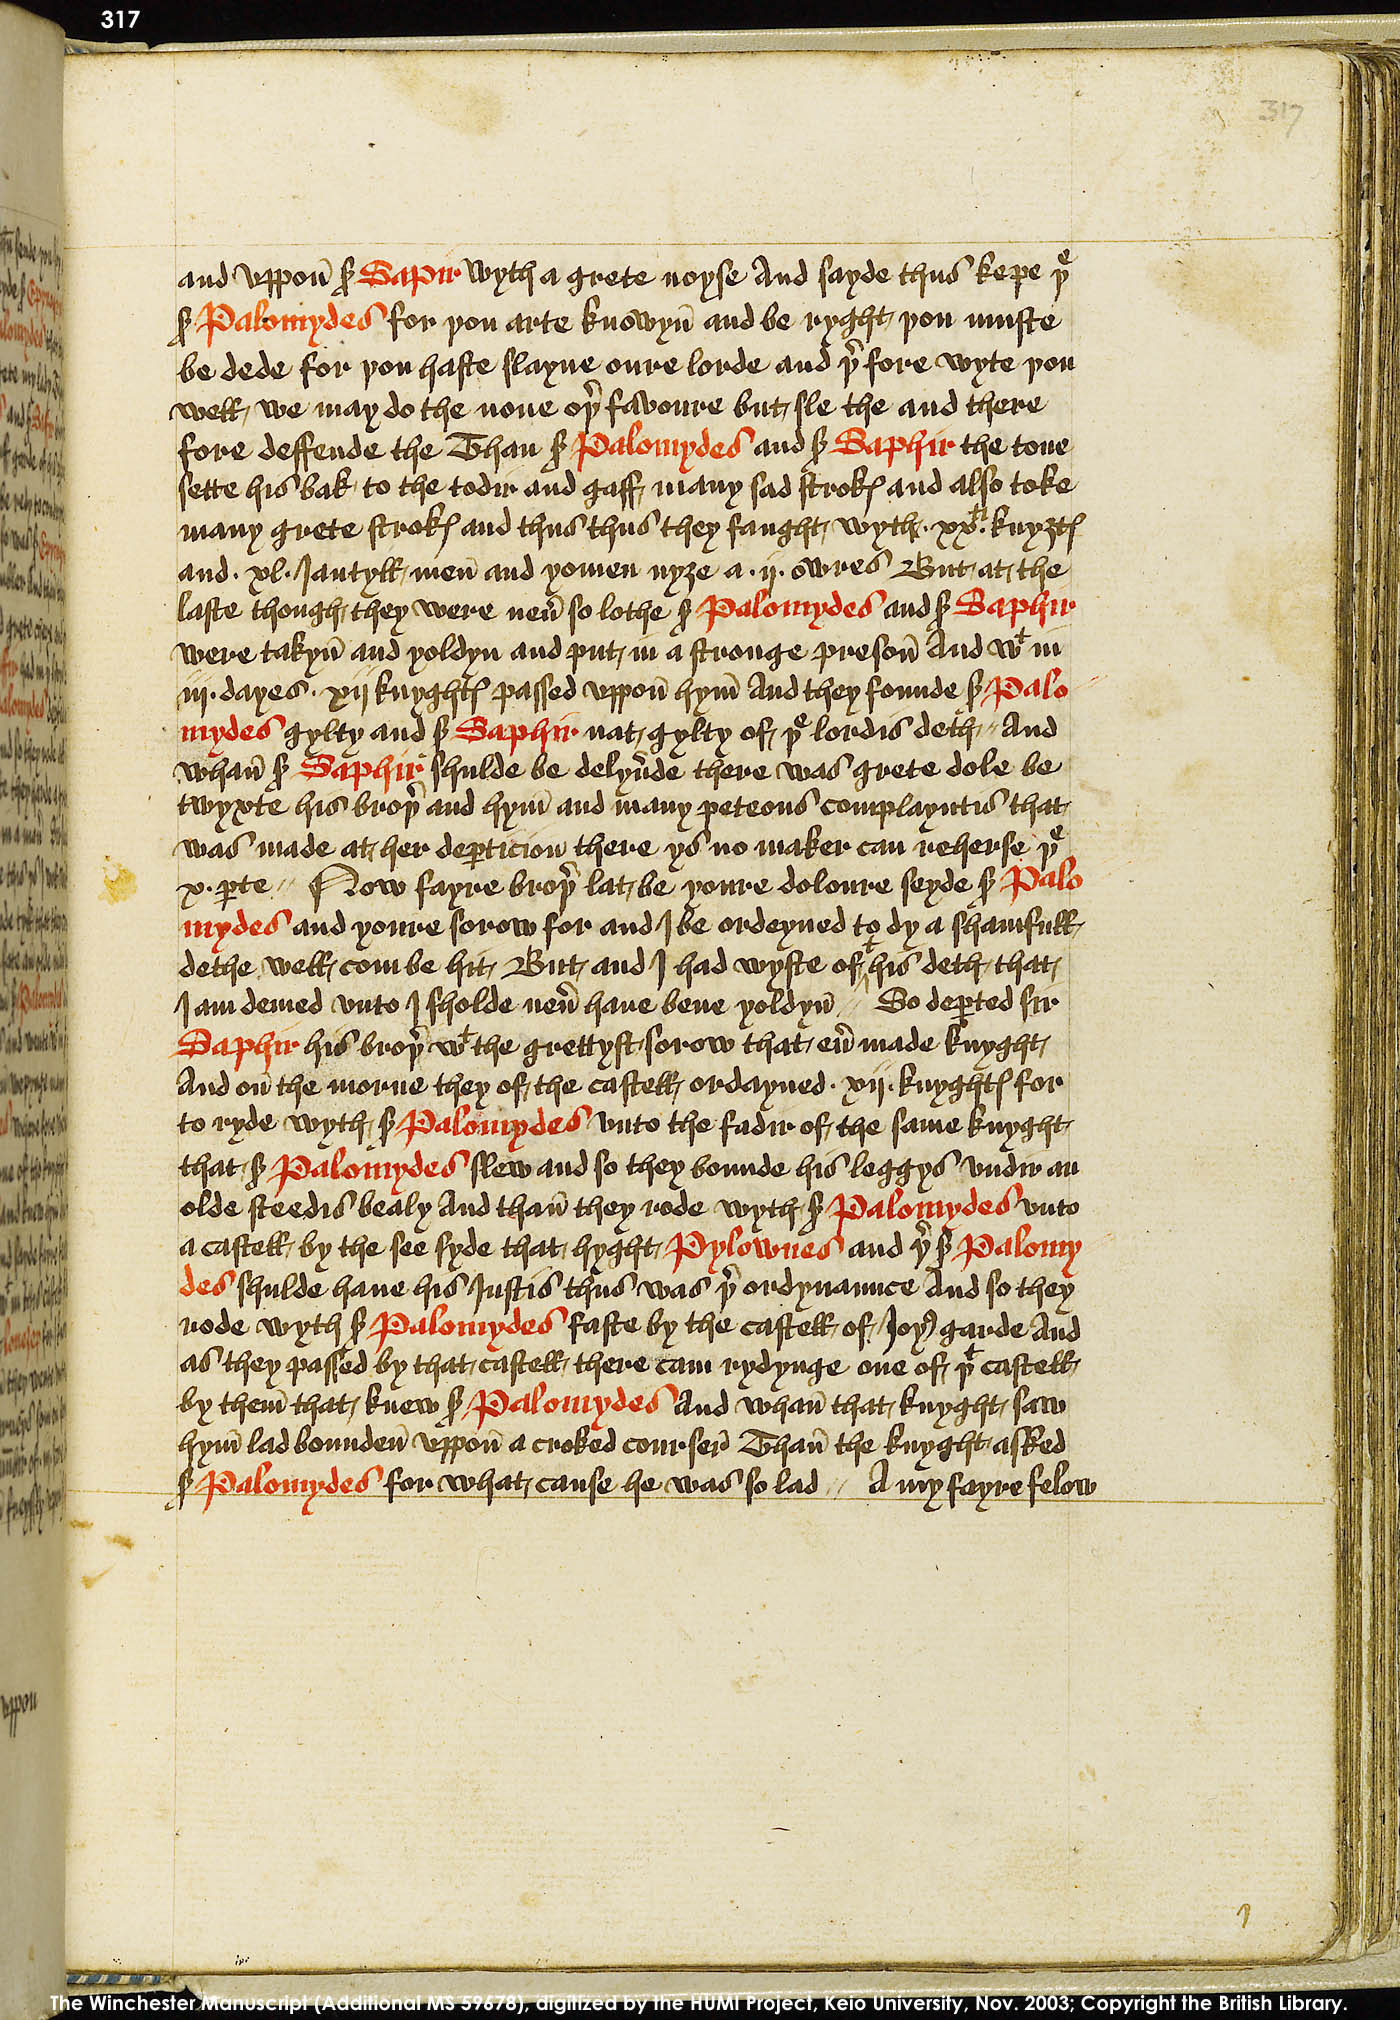 317
317
and vppon̄ sͬ Sapir wyth a grete noyse And sayde thus kepe þͤ
sͬ Palomydes for þou arte knowyn̄ and be ryght þou muste
be dede for þou haste slayne oure lorde and þ̛fore wyte þou
well we may do the none oþ̛ favoure but sle the and there
fore deffende the Than sͬ Palomydes and sͬ Saphir the tone
sette his bak to the todir and gaff many sad strokꝭ and also toke
many grete strokꝭ and thus thus they faught wyth · xxᵗⁱ · knyȝtꝭ
and · xl · Jantyll men̄ and yomen nyȝe a · ij · owres But at the
laste though they were neư so lothe sͬ Palomydes and sͬ Saphir
were takyn̄ and yoldyn and put in a stronge preson̄ And wᵗ in
iij · dayes · xij knyghtꝭ passed vppon̄ hym̄ And they founde sͬ Palo
mydes gylty and sͬ Saphir nat gylty of þͤ lordis deth // And
whan̄ sͬ Saphir shulde be delyưde there was grete dole be
twyxte his broþ̛ and hym̄ and many peteous complayntis that
was made at her deꝑticion there ys no maker can reherse þͤ
x · ꝑte // Now fayre broþ̛ lat be youre doloure seyde sͬ Palo
mydes and youre sorow for and I be ordeyned to dy a shamfull
dethe well com be hit But and I had wyste of ᵗhis deth that
I am demed vnto I sholde neư haue bene yoldyn̄ // So deꝑted sir
Saphir his broþ̛ wᵗ the grettyst sorow that eư made knyght
And on̄ the morne they of the castell ordayned · xij · knyghtꝭ for
to ryde wyth sͬ Palomydes vnto the fadir of the same knyght
that sͬ Palomydes slew and so they bounde his leggys vndir an
olde steedis bealy And than̄ they rode wyth sͬ Palomydes vnto
a castell by the see syde that hyght Pylownes and þ̛ sͬ Palomy
des shulde haue his Justis thus was þ̛ ordynaunce And so they
rode wyth sͬ Palomydes faste by the castell of Joyꝰ garde And
as they passed by that castell there cam rydynge one of þᵗ castell
by them̄ that knew sͬ Palomydes And whan̄ that knyght saw
hym̄ lad bounden̄ vppon̄ a croked courser̄ Than̄ the knyght asked
sͬ Palomydes for what cause he was so lad // A my fayre felow
vppon
The Winchester Manuscript (Additional MS 59678), digitized by the HUMI Project, Keio University, Nov. 2003; Copyright the British Library.